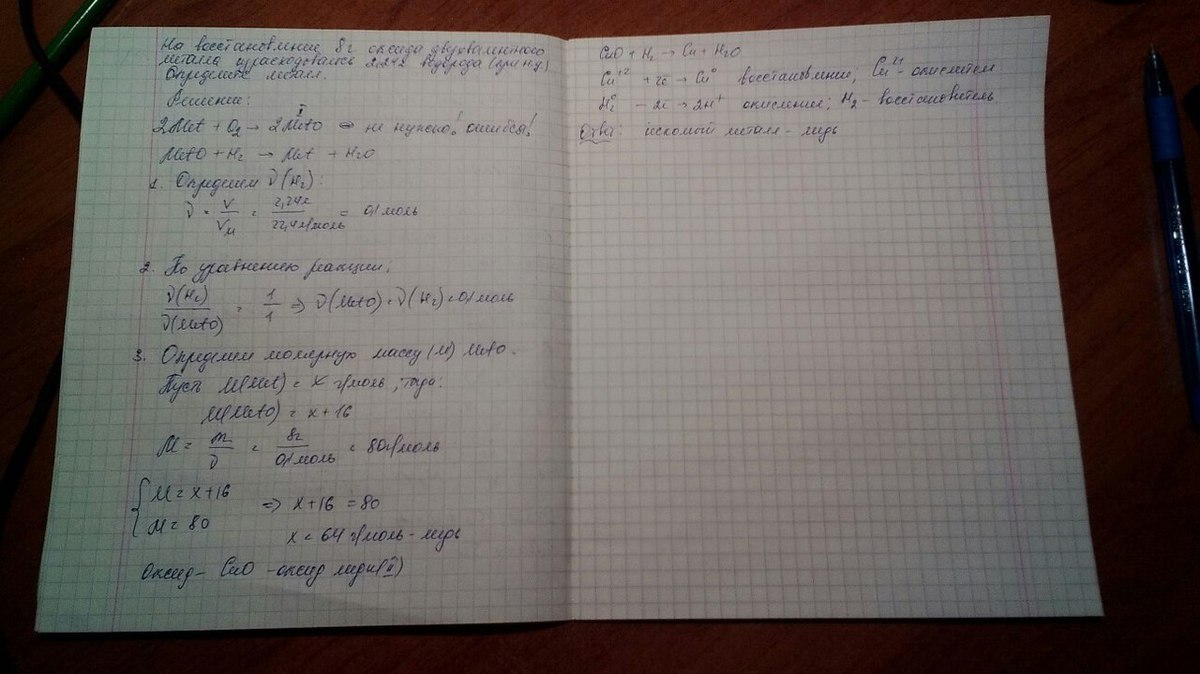 На восстановление 8г оксида двухвалентного
металла израсходовались 2,24л водорода (при н.у.)
Определите металл.
Решение:
II
2Met + O₂ → 2MetO не нужно! ошибся!
MetO + H₂ → Met + H₂O
1. Определяем ν(H₂):
ν = V/Vм = 2,24л/22,4л/моль = 0,1 моль
2. По уравнению реакции:
ν(H₂)/ν(MetO) = 1/1 ⇒ ν(MetO) = ν(H₂) = 0,1 моль
3. Определяем молярную массу (M) MetO.
Пусть M(Met) = x г/моль, тогда:
M(MetO) = x + 16
M = m/ν = 8г/0,1моль = 80г/моль
{ M = x+16
M = 80
⇒ x+16 = 80
x = 64 г/моль - медь
Оксид - CuO - оксид меди(II)
CuO + H₂ → Cu + H₂O
Cu⁺² + 2e → Cu⁰ восстановление; Cu²⁺ - окислитель
H₂⁰ - 2e → 2H⁺ окисление; H₂ - восстановитель
Ответ: искомый металл - медь